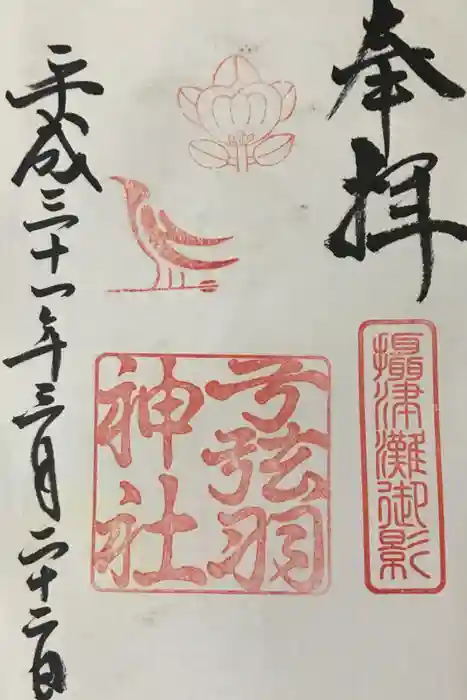 奉拝
摂津灘御影
弓弦羽
神社
平成三十一年三月二十二日